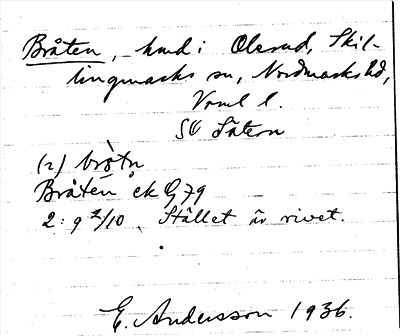 Bråten, hmd i Olsrud, Skil-
lingmarks sn, Nordmarks hd,
Vrml l.
SO Sätern
(2) brò̀tn
Bråten ek G 79
2: 9 2/10. Stället är rivet.
E. Andersson 1936.